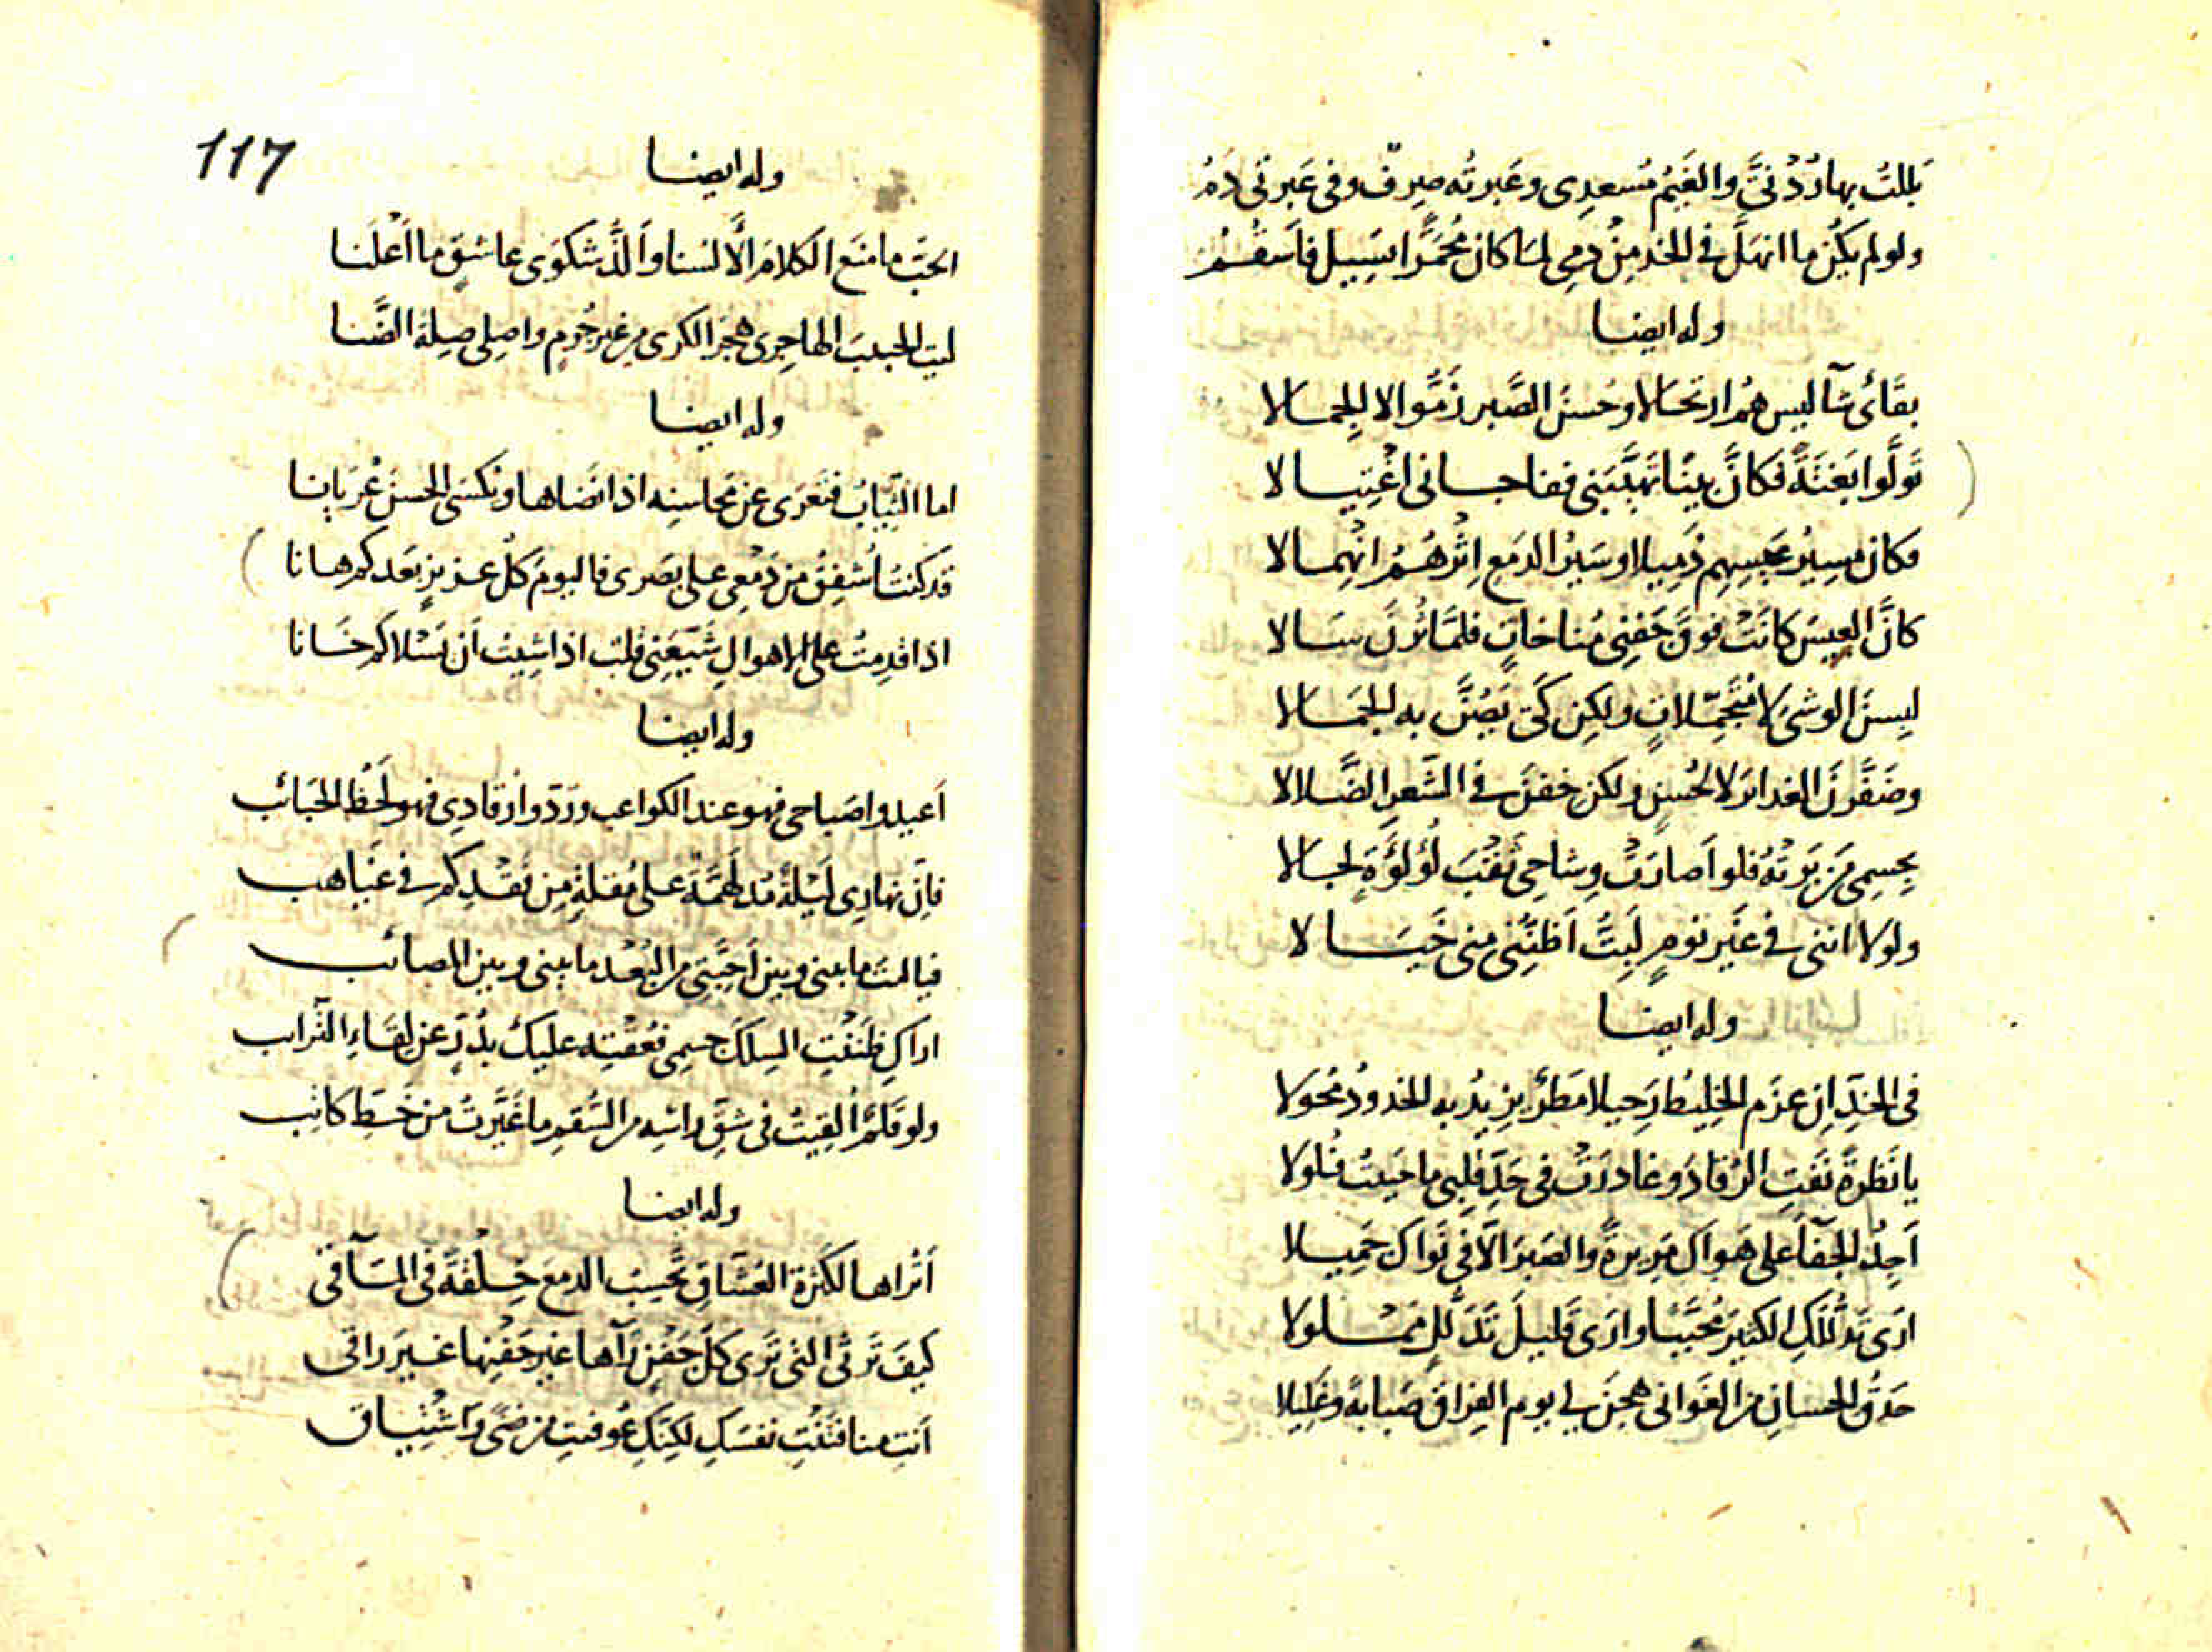 بَللتُ بها رُدْنَيَّ والغَيمُ مُسعدِى وعَبرتُه صِرفٌ وفى عَبرتى دَمُ
ولو لم يكُن ما انهلَّ فى الخد مِنْ دمِى لما كان مُحمَرًّا يَسِيل فأسقَمُ
وله ايضا
بقَائى شآ ليس هُم ارتحالا وحُسنَ الصَّبر زَمُّوا لا الجِمالا
تَولَّوا بَغتَةً فَكانَّ بينًا تهيَّبَنى ففاجانى اغْتِيالا
فكان مسِيرُ عِيسِهِم ذَمِيلا وسَيرُ الدمع اِثْرَهُمُ انْهِمالا
كانَّ العِيسَ كانَتْ فوقَ جَفنِى مُناخاتٍ فلمَّا ثُرنَ سَالا
لبِسنَ الوشىَ لا مُتَجمِّلاتٍ ولكِن كَى يَصُنَّ به الجَمالا
وضَفَّرنَ الغدائرَ لا لحُسنٍ ولكن خفنَ فى الشَّعرِ الضَّلالا
بجِسمِى مَن بَرَتْهُ فلو اَصارَتْ وِشاحِى ثقْبَ لُؤلؤَةٍ لجالا
ولولا اننى فى غَير نومٍ لَبِتُّ اَظنُّنِى منى خَيَالا
وله ايضا
فى الخدِّ اِن عزَم الخلِيطُ رَحِيلا مَطرٌ يزِيدُ به الخدودُ مُحولا
يا نَظرةً نَفَتِ الرُقادَ وغادرَتْ فى حَدِّ قلبِى ما حَيِيتُ فُلولا
اَجِدُ الجَفآَ على هَواكِ مَرِيرةً والصَبرَ الَّا فى نَواكِ جَمِيلا
ارَى تدَلُّلَكِ الكثيرَ مُحبَّبًا وارَى قَليلَ تَدَلُّلٍ مَمْلولا
حَدقُ الحِسانِ من الغَوانى هِجنَ لى يوم الفِراق صَبابةً وغَلِيلا
117
وله ايضا
الحبّ ما منَع الكلامَ الاَلسُنا واَلذُّ شكوَى عاشقٍ ما اَعْلَنا
ليت الحبيبَ الهاجِرى هَجرَ الكرى من غير جُرمٍ واصِلى صِلةَ الضَّنا
وله ايضا
اما الثِّيابُ فتَعرَى عن مَحاسِنِه اذا نَضاها وتكسَى الحسنَ عُرْيانا
قد كنتُ اُشفِقُ من دَمْعِى على بصَرى فاليومَ كلُّ عزيزٍ بَعدكم هانا
اذا قدِمتُ على الاهوالِ شَيَّعَنِى قلبٌ اذا شِيتُ اَن يَسْلاكُم خَانا
وله ايضا
اَعيدوا صَباحى فهو عند الكواعب ورَدّوا رُقادِى فهو لَحظُ الحَبائب
فاِنّ نهارِى لَيْلةٌ مُدلَهِمَّةٌ على مُقلةٍ مِن فَقْدِكم فى غَياهب
فياليتَ ما بينى وبين اَحِبَّتِى من البُعْد ما بينى وبين المصائب
اراكِ ظنَنْتِ السِلكَ جسمِى فعُقتِه عليكِ بدُرٍّ عن لِقاءِ التَّرائب
ولو قَلمٌ اُلقِيتُ فى شِقّ راسِه من السُّقم ما غَيَّرتُ من خَطِّ كاتب
وله ايضا
اَتُراها لكَثرة العُشّاقِ تَحسِبُ الدمعَ خِلْقةً فى المآقى
كيفَ تَرثى التى تَرى كلَّ جَفنٍ رَآها غيرَ جَفْنِها غيرَ راقى
اَنتِ منا فتَنْتِ نفسَكِ لكنَّكِ عُوفيتِ من ضَنًى واشْتِياق